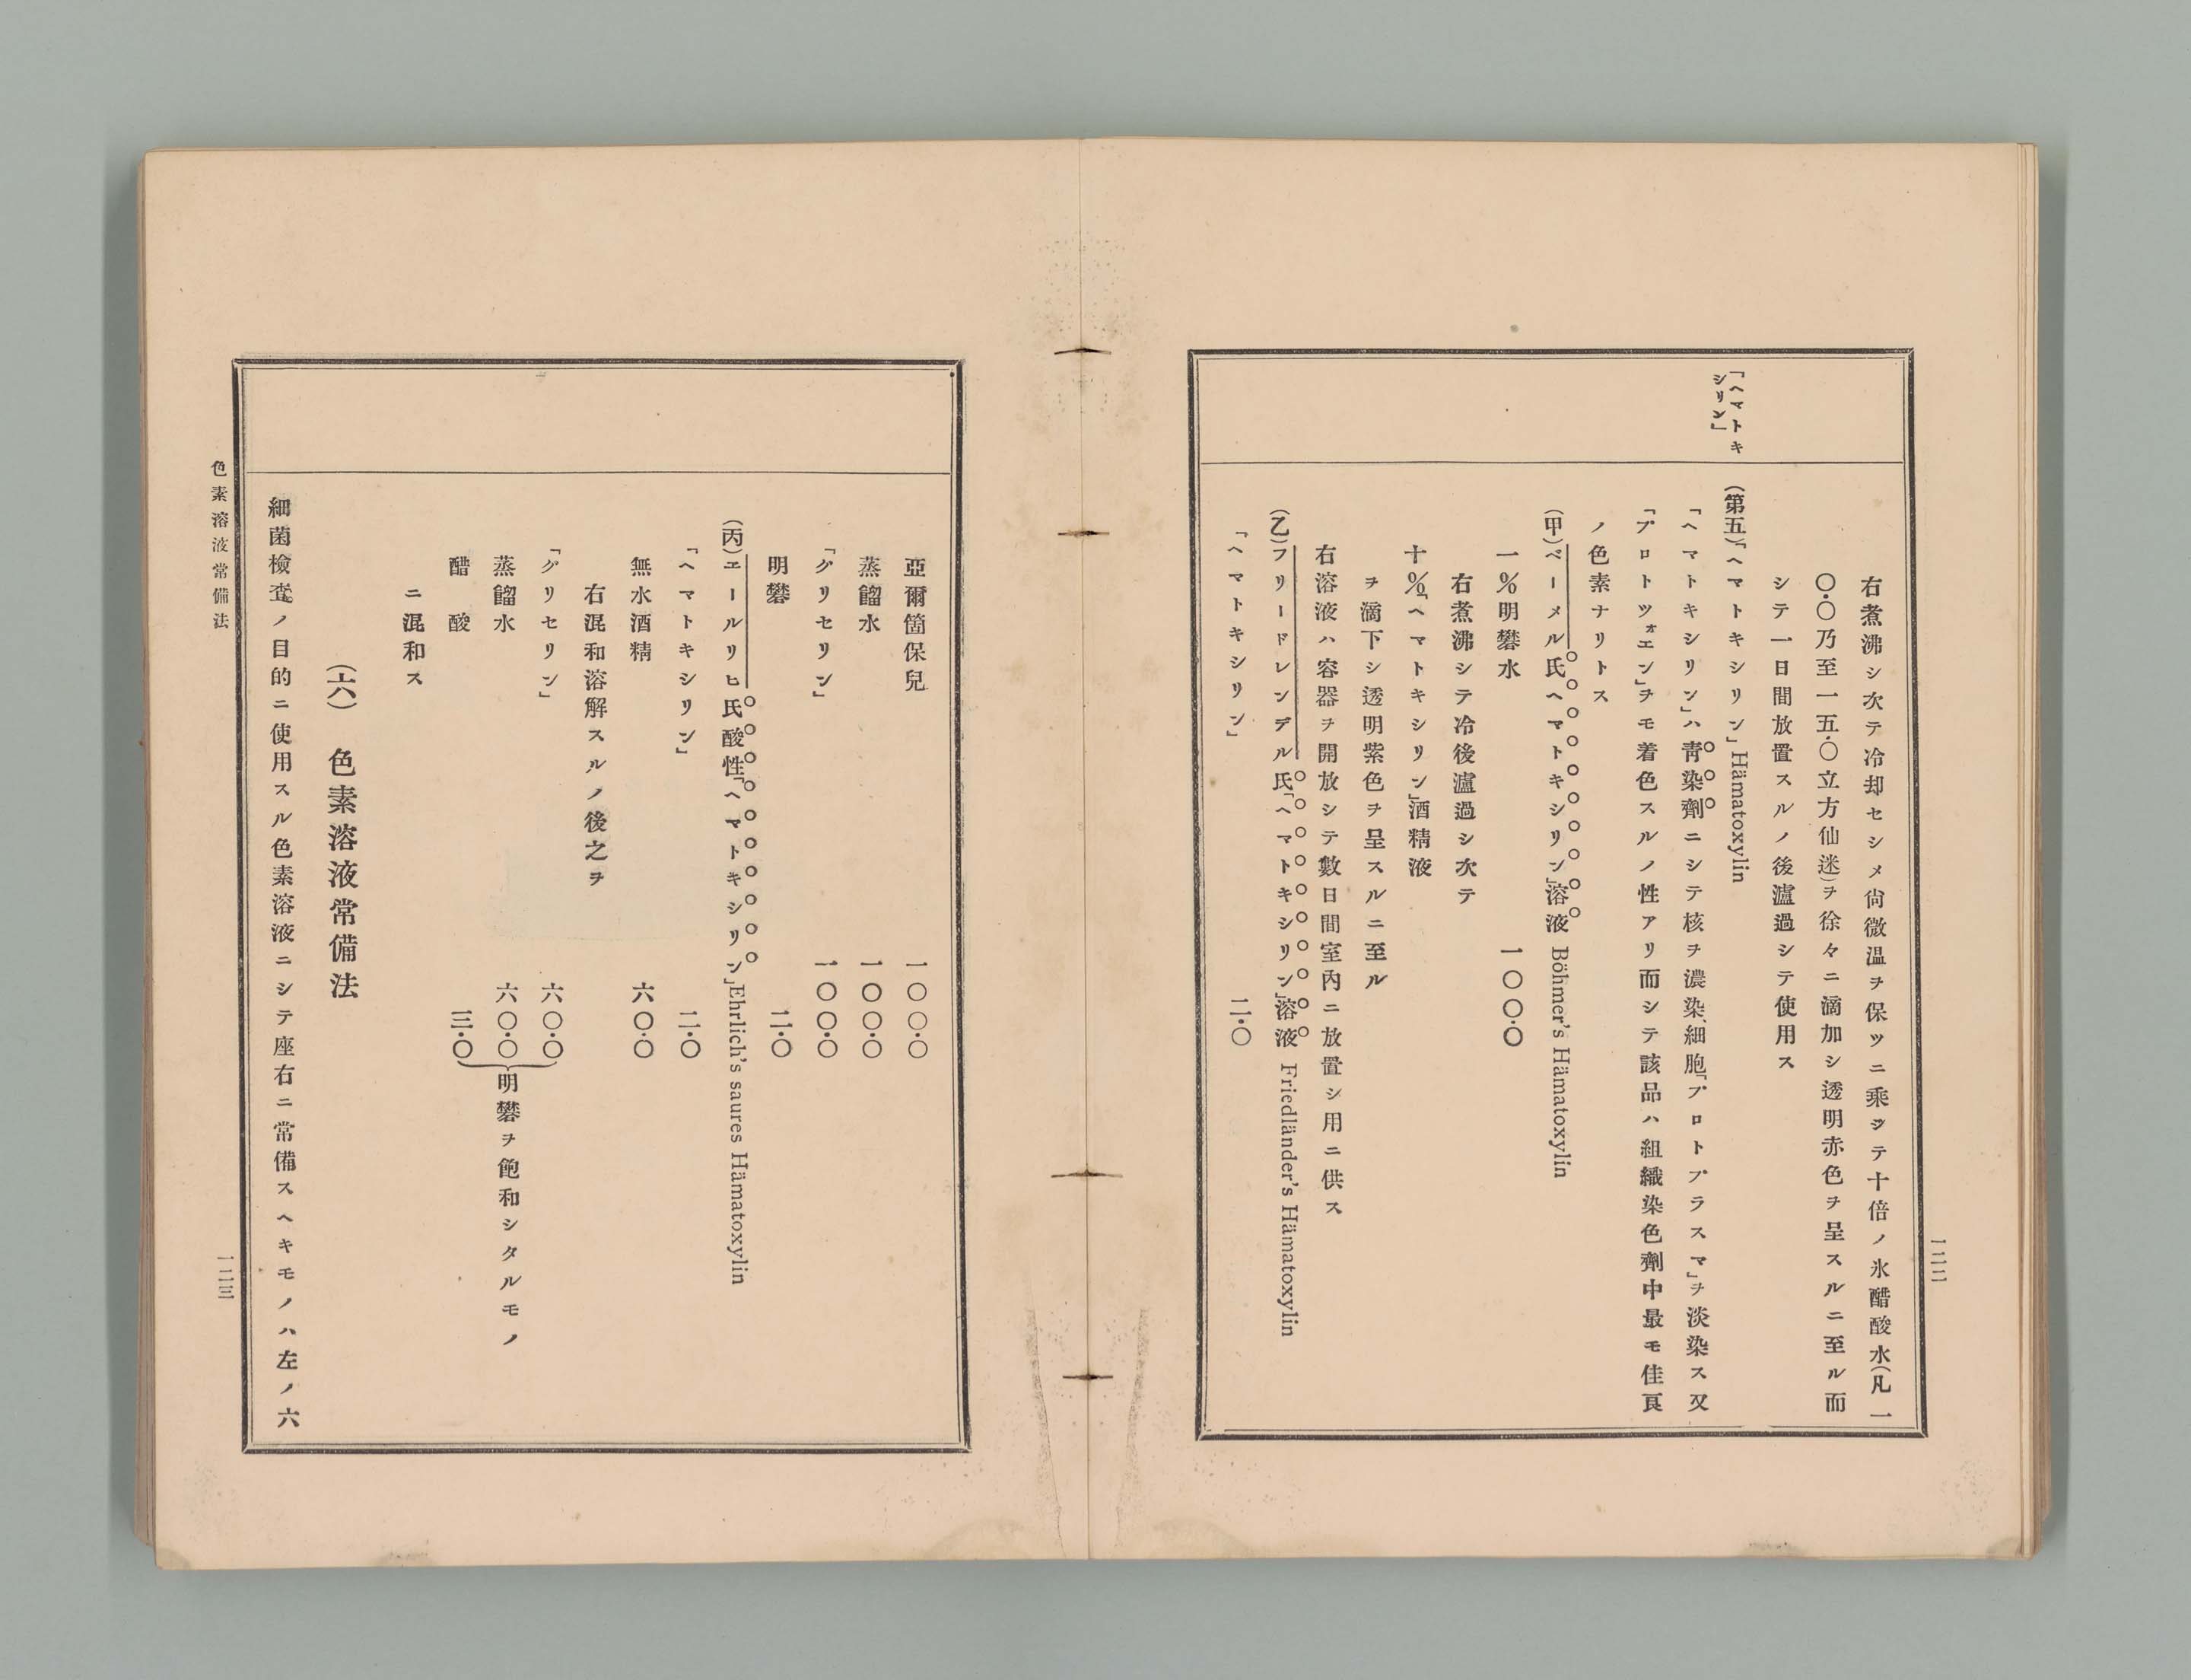 「ヘマトキ
シリン」
右煮沸シ次テ冷却セシメ尙微溫ヲ保ツニ乘シテ十倍ノ氷醋酸水(凡一
〇・〇乃至一五・〇立方仙迷)ヲ徐々ニ滴加シ透明赤色ヲ呈スルニ至ル而
シテ一日間放置スルノ後濾過シテ使用ス
(第五)「ヘマトキシリン」Hämatoxylin
「ヘマトキシリン」ハ靑染劑ニシテ核ヲ濃染、細胞「プロトプラスマ」ヲ淡染ス又
「プロトツォエン」ヲモ着色スルノ性アリ而シテ該品ハ組織染色劑中最モ佳良
ノ色素ナリトス
(甲)ベーメル氏ヘマトキシリン」溶液 Böhmer's Hämatoxylin
一%明礬水 一〇〇・〇
右煮沸シテ冷後濾過シ次テ
十%「ヘマトキシリン」酒精液
ヲ滴下シ透明紫色ヲ呈スルニ至ル
右溶液ハ容器ヲ開放シテ數日間室內ニ放置シ用ニ供ス
(乙)フリードレンデル氏「ヘマトキシリン」溶液 Friedländer's Hämatoxylin
「ヘマトキシリン」 二・〇
一二二
亞爾箇保兒 一〇〇・〇
蒸餾水 一〇〇・〇
「グリセリン」 一〇〇・〇
明礬 二・〇
(丙)エールリヒ氏酸性「ヘマトキシリン」Ehrlich's saures Hämatoxylin
「ヘマトキシリン」 二・〇
無水酒精 六〇・〇
右混和溶解スルノ後之ヲ
「グリセリン」 六〇・〇
蒸餾水 六〇・〇 明礬ヲ飽和シタルモノ
醋酸 三・〇
ニ混和ス
(一六) 色素溶液常備法
細菌檢査ノ目的ニ使用スル色素溶液ニシテ座右ニ常備スヘキモノハ左ノ六
色素溶液常備法
一二三